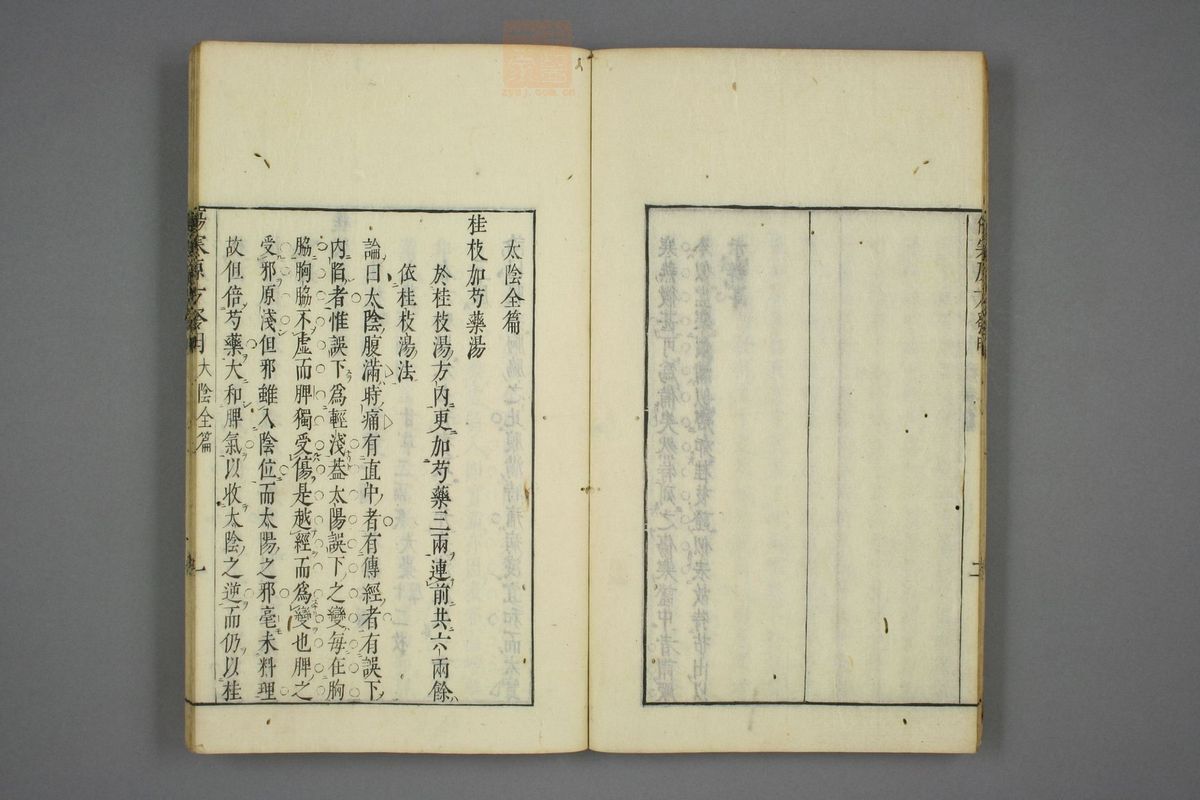 太陰全篇
桂枝加芍藥湯
於桂枝湯方內更加芍藥三兩連前共六兩餘
依桂枝湯法
論曰太陰腹滿時痛有直中者有傳經者有誤下
內陷者惟誤下爲輕淺葢太陽誤下之變每在胸
脇胸脇不虛而脾獨受傷是越經而爲變也脾之
受邪原淺但邪雖入陰位而太陽之邪毫未料理
故但倍芍藥大和脾氣以收太陰之逆而仍以桂
傷寒源方發明 太陰全篇 一
二
zysj.com.cn